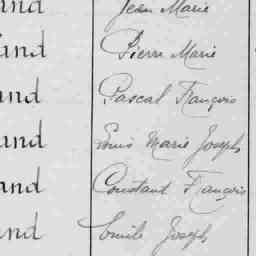 and Jean Marie
and Pierre Marie
and Pascal François
and Louis Marie Joseph
and Constant François
and Emile Joseph